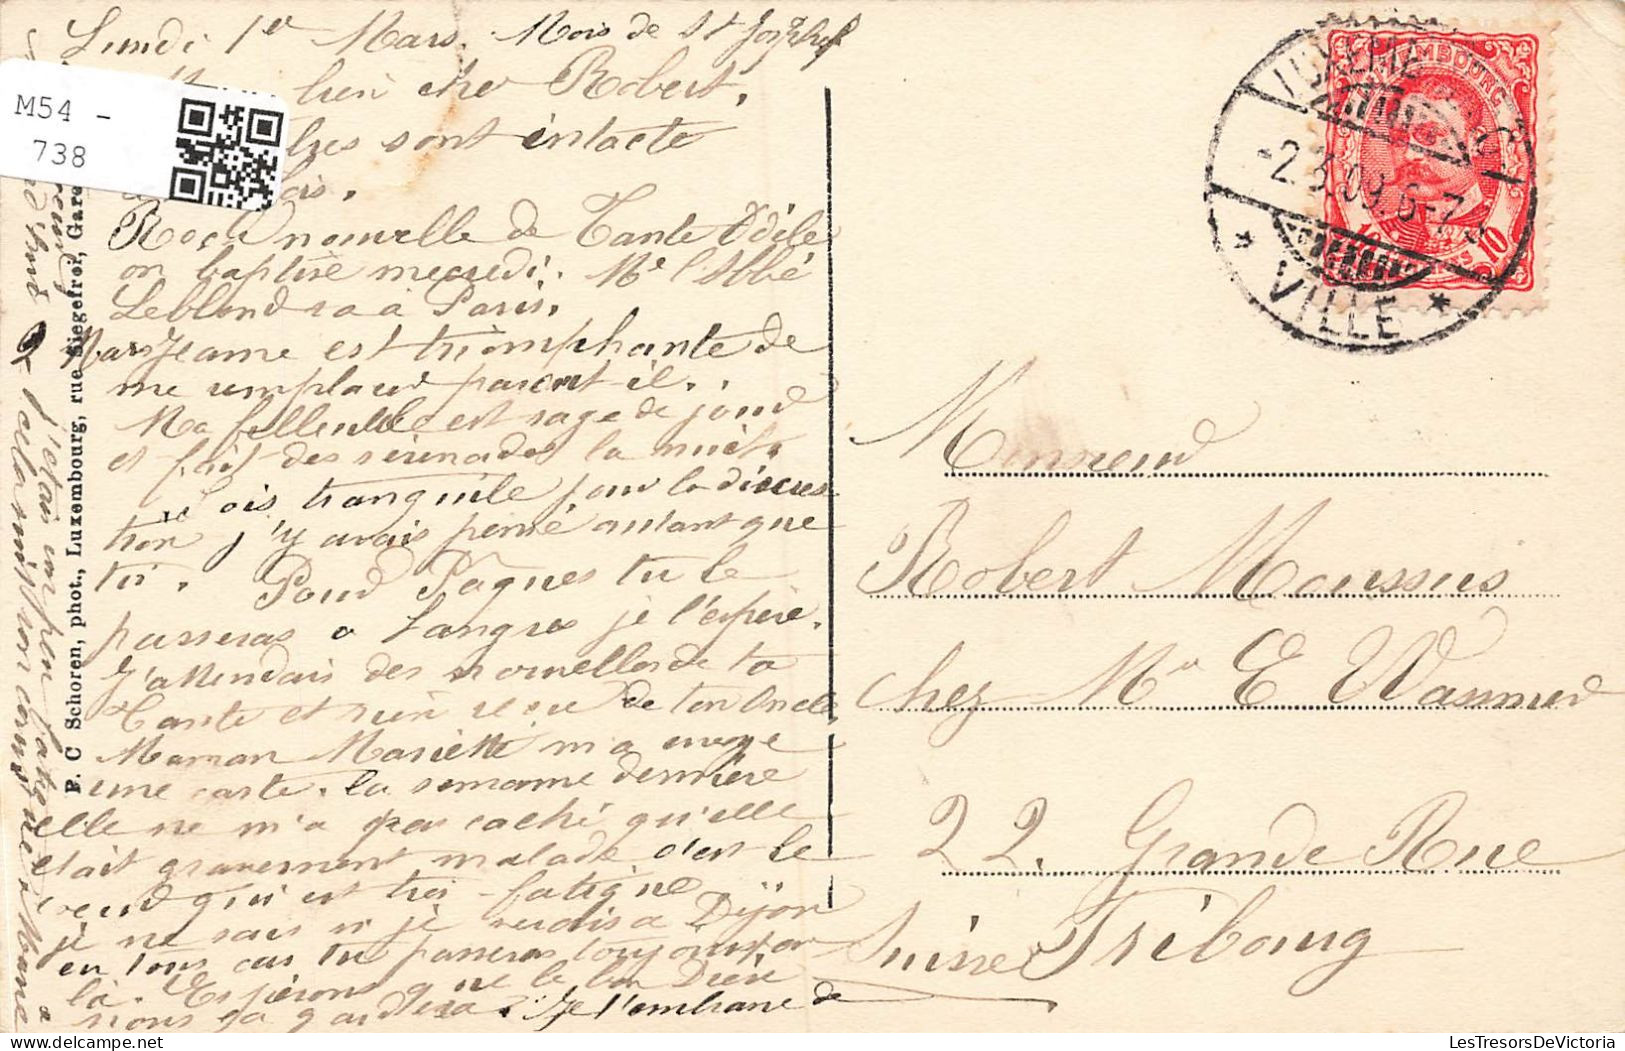 Lundi 1er Mars. Mois de St Joseph
bien cher Robert,
sont intacte
Reçu nouvelle de Tante Odile
on baptise mecredi. Mr l'Abbé
Leblond va à Paris.
Jeanne est triomphante de
me remplacer parait-il..
Ma filleulle est sage de jour
et fait des sérénades la nuit.
Sois tranquile pour la discres
tion j'y avais pensé autant que
toi. Pour Pâques tu le
passeras a Langres je l'espère.
J'attendais des nouvelles de ta
Tante et rien reçu de ton Oncle
Maman Mariette m'a envoye
une carte. la semaine dernière
elle ne m'a pas caché qu'elle
etait gravement malade c'est le
cœur qui est très fatigué
je ne sais si je serais a Dijon
en tous cas tu passeras toujours par
là. Espérons que le bon Dieu
nous la gardera. Je t'embrasse de
P. C Schoren, phot., Luxembourg, rue Siegefroi, Gare
j'etais un peu
M54 -
738
LUXEMBOURG
-2.3.09. 6-7
* VILLE *
LUXEMBOURG
10
10
Monsieur
Robert Moussus
chez Mr E Wasmer
22. Grande Rue
Suisse Fribourg
LesTresorsDeVictoria